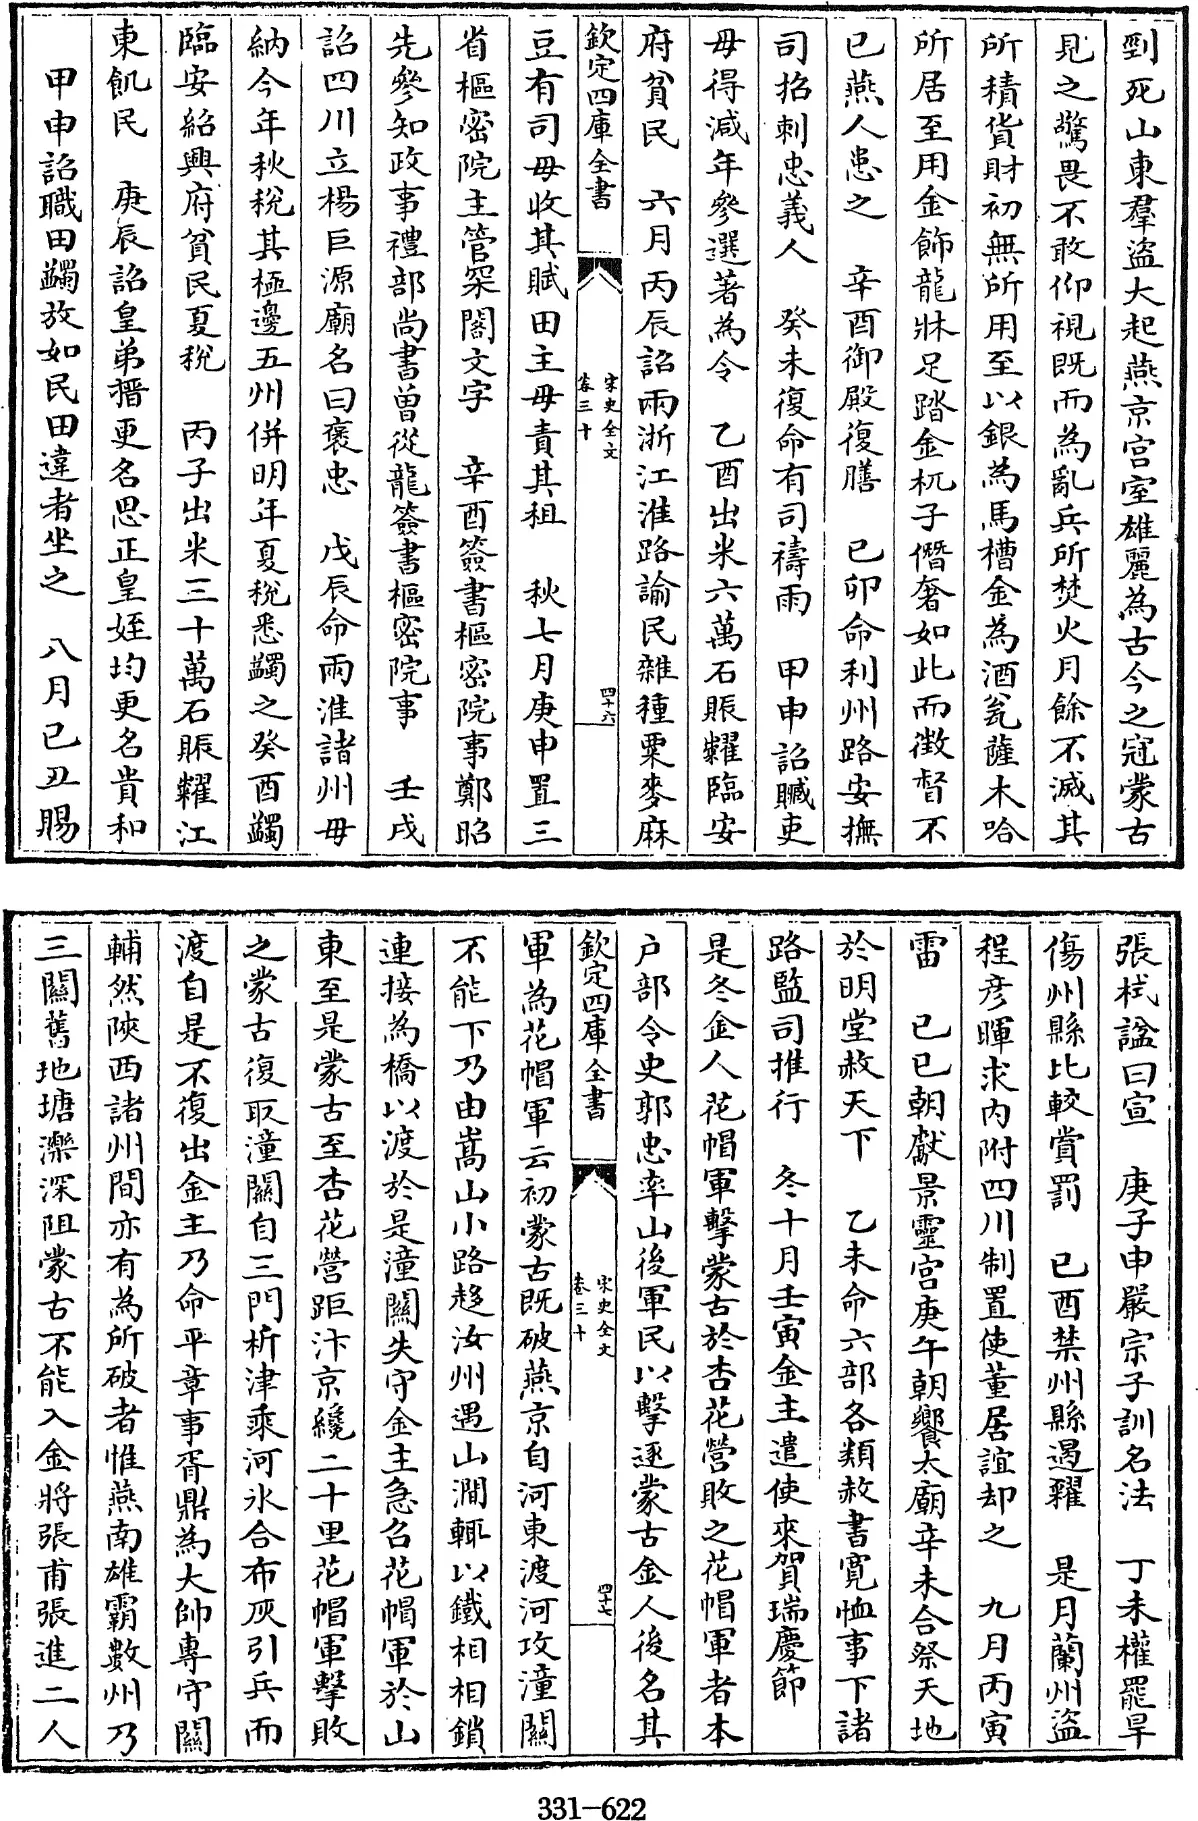 剄死山東羣盗大起燕京宫室雄麗為古今之冠蒙古
見之驚畏不敢仰視既而為亂兵所焚火月餘不滅其
所積貨財初無所用至以銀為馬槽金為酒瓮薩木哈
所居至用金飾龍牀足踏金杌子僭奢如此而徴督不
已燕人患之　辛酉御殿復膳　已卯命利州路安撫
司招刺忠義人　癸未復命有司禱雨　甲申詔贓吏
毋得减年參選著為令　乙酉出米六萬石賑糶臨安
府貧民　六月丙辰詔兩浙江淮路諭民雜種粟麥麻
欽定四庫全書
宋史全文
卷三十
四十六
豆有司毋收其賦田主毋責其租　秋七月庚申置三
省樞密院主管架閣文字　辛酉簽書樞密院事鄭昭
先參知政事禮部尚書曽從龍簽書樞密院事　壬戌
詔四川立楊巨源廟名曰褒忠　戊辰命兩淮諸州毋
納今年秋税其極邊五州併明年夏税悉蠲之癸酉蠲
臨安紹興府貧民夏税　丙子出米三十萬石賑糶江
東飢民　庚辰詔皇弟搢更名思正皇姪均更名貴和
甲申詔職田蠲放如民田違者坐之　八月已丑賜
張栻諡曰宣　庚子申嚴宗子訓名法　丁未權罷旱
傷州縣比較賞罰　已酉禁州縣遏糴　是月蘭州盗
程彦暉求内附四川制置使董居誼却之　九月丙寅
雷　已巳朝獻景靈宫庚午朝饗太廟辛未合祭天地
於明堂赦天下　乙未命六部各類赦書寛恤事下諸
路監司推行　冬十月壬寅金主遣使來賀瑞慶節
是冬金人花帽軍擊蒙古於杏花營敗之花帽軍者本
户部令史郭忠率山後軍民以擊逐蒙古金人後名其
欽定四庫全書
宋史全文
卷三十
四十七
軍為花帽軍云初蒙古既破燕京自河東渡河攻潼關
不能下乃由嵩山小路趍汝州遇山澗輒以鐵相相鎖
連接為橋以渡於是潼關失守金主急召花帽軍於山
東至是蒙古至杏花營距汴京纔二十里花帽軍擊敗
之蒙古復取潼關自三門析津乘河氷合布灰引兵而
渡自是不復出金主乃命平章事胥鼎為大帥專守關
輔然陜西諸州間亦有為所破者惟燕南雄霸數州乃
三關舊地塘濼深阻蒙古不能入金將張甫張進二人
331-622